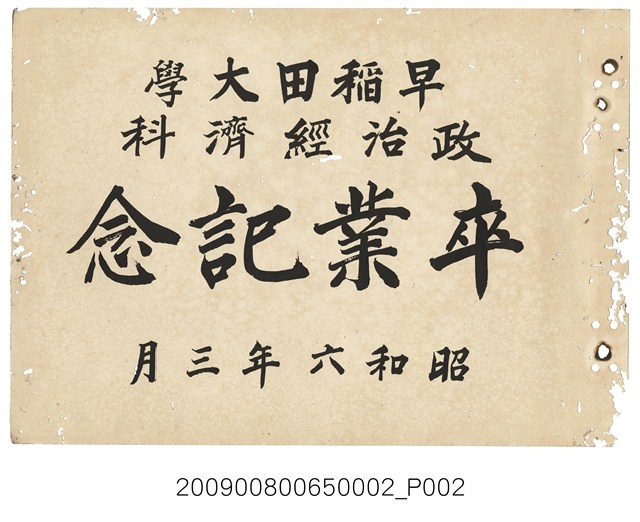 早稲田大學
政治經濟科
卒業記念
昭和六年三月
200900800650002_P002